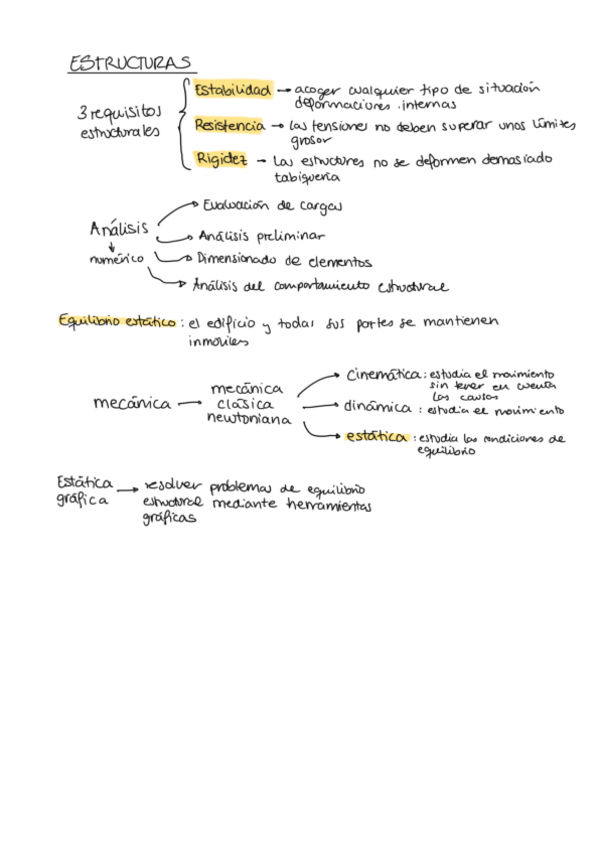 ESTRUCTURAS
3 requisitos
estructurales
Estabilidad → acoger cualquier tipo de situación
deformaciones internas
Resistencia → las tensiones no deben superar unos límites
grosor
Rigidez → Las estructures no se deformen demasiado
tabiquería
Análisis
↓
numérico
→ Evaluación de cargas
→ Análisis preliminar
→ Dimensionado de elementos
→ Análisis del comportamiento estructural
Equilibrio estático: el edificio y todas sus partes se mantienen
inmóviles
mecánica → mecánica
clásica
newtoniana
→ cinemática: estudia el movimiento
sin tener en cuenta
las causas
→ dinámica: estudia el movimiento
→ estática: estudia las condiciones de
equilibrio
Estática
gráfica
→ resolver problemas de equilibrio
estructural mediante herramientas
gráficas